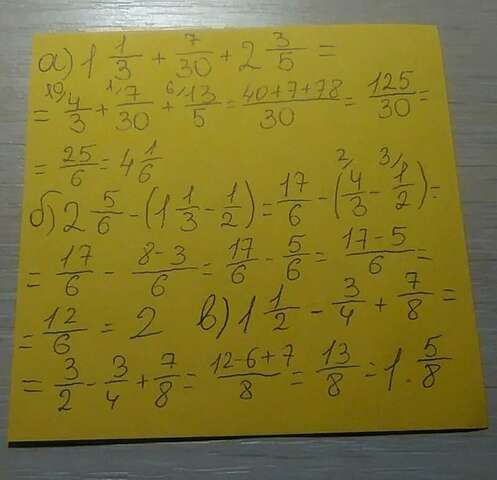 а) 1 1/3 + 7/30 + 2 3/5 =
= 10/ 4/3 + 1/ 7/30 + 6/ 13/5 = 40+7+78/30 = 125/30 =
= 25/6 = 4 1/6
б) 2 5/6 - (1 1/3 - 1/2) = 17/6 - (2/ 4/3 - 3/ 1/2) =
= 17/6 - 8-3/6 = 17/6 - 5/6 = 17-5/6 =
= 12/6 = 2 в) 1 1/2 - 3/4 + 7/8 =
= 3/2 - 3/4 + 7/8 = 12-6+7/8 = 13/8 = 1 . 5/8